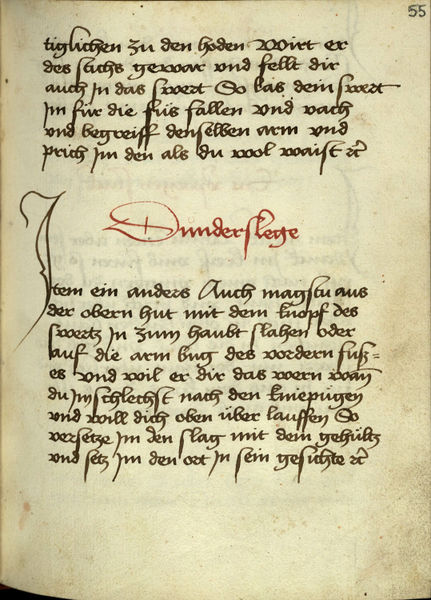 55
tiglichen zu den hoden Wirt er
des stichs gewar vnd fellt dir
auch In das swert So las dein swert
Im für die füs fallen vnd vach
vnd begreiff denselben arm vnd
prich Im den als du wol waist rc
Dunderslege
Item ein anders Auch magstu aus
der obern hut mit dem knopf des
swertz In zum haubt slahen oder
auf die arm bug des vordern fuß=
es vnd wil er dir das wern wan̄
du Inschlechst nach den kniepügen
vnd will dich oben über lauffen So
versetze Im den slag mit dem gehültz
vnd setz Im den ort In sein gesichte rc